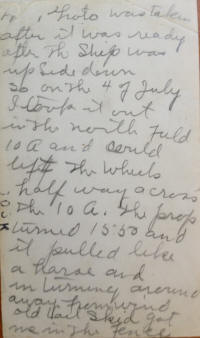 Photo was taken
after it was ready
after The Ship was
up Side down
So on The 4 of July
I took it out
in The north Field
10 A and Could
lift The Wheels
half way across
The 10 A. The prop
turned 1550 and
it pulled like
a horse and
in turning around
away from wind
old tail Skid got
me in The Fence